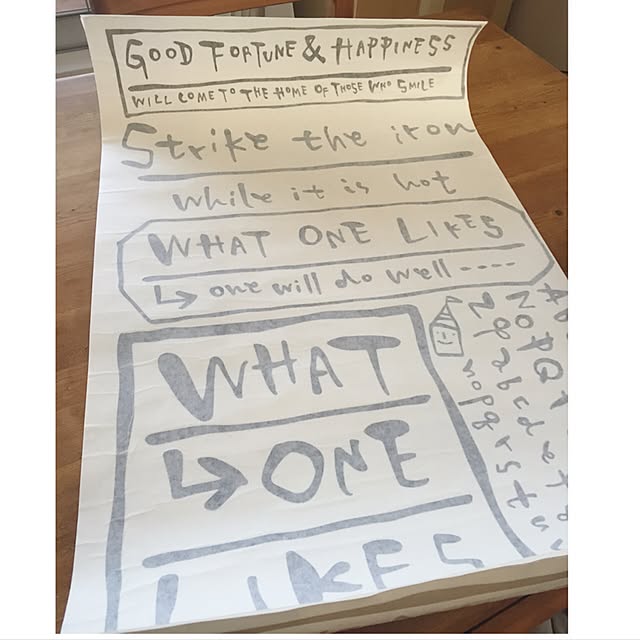 GOOD FORTUNE & HAPPINESS
WILL COME TO THE HOME OF THOSE WHO SMILE
Strike the iron
while it is hot
WHAT ONE LIKES
↳ one will do well ----
WHAT
↳ ONE
LIKES
NOPQ
abcde
nopqrstu